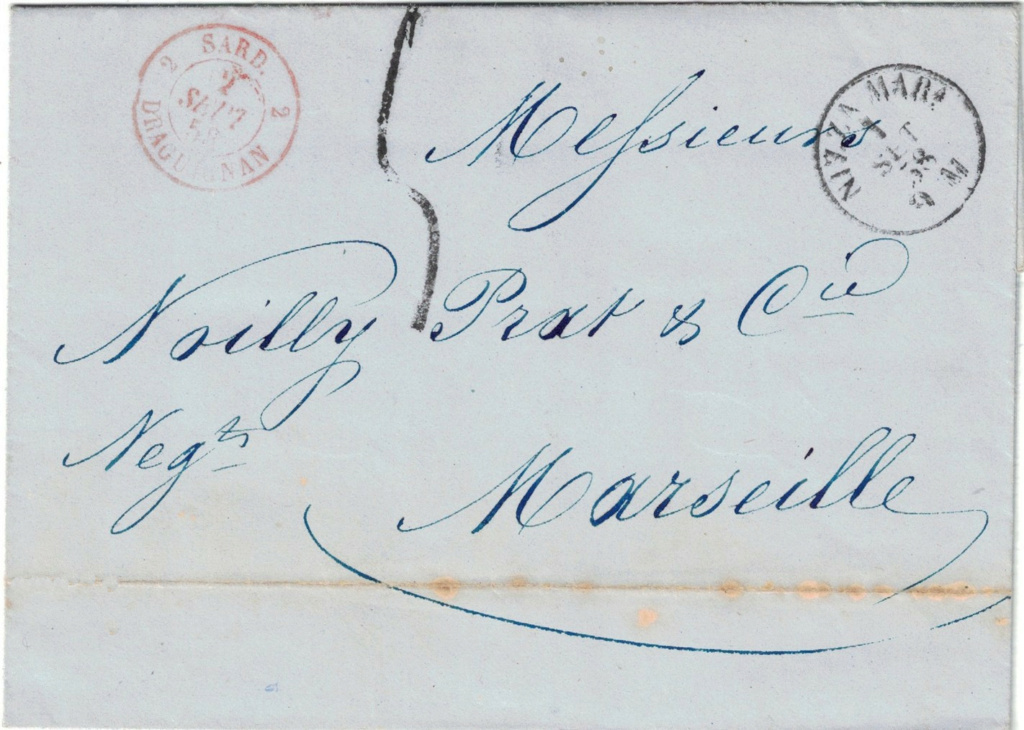 2 SARD. 2
2
SEPT
DRAGUIGNAN
NIZZA MARA
1
SET
58
Messieurs
Noilly Prat & Cie
Negts
Marseille
5